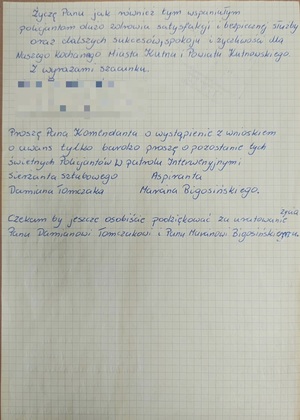 Życzę Panu jak również tym wspaniałym
policjantom dużo zdrowia satysfakcji i bezpiecznej służby
oraz dalszych sukcesów, spokoju i życzliwości dla
Naszego Kochanego Miasta Kutna i Powiatu Kutnowskiego.
Z wyrazami szacunku.
Proszę Pana Komendanta o wystąpienie z wnioskiem
o awans tylko bardzo proszę o pozostanie tych
świetnych Policjantów w patrolu Interwencyjnymi
Sierżanta sztabowego Aspiranta
Damiana Tomczaka Mariana Bigosińskiego.
życia
Czekam by jeszcze osobiście podziękować za uratowanie
Panu Damianowi Tomczakowi i Panu Marianowi